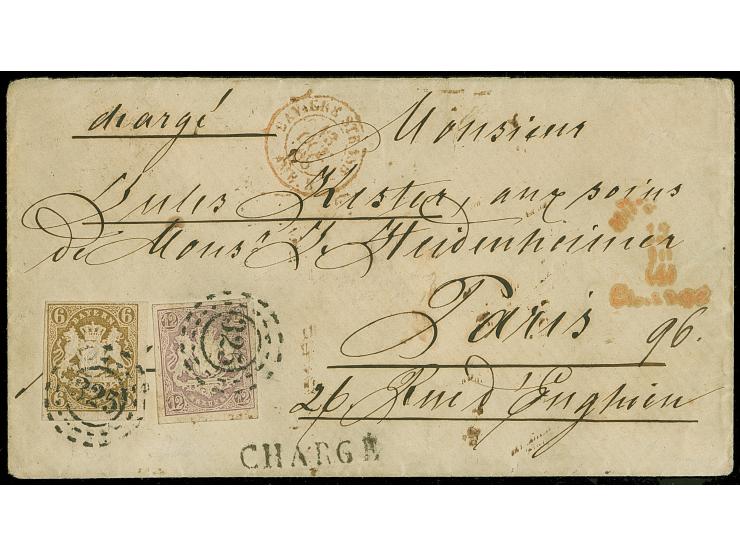 chargé
Monsieur
Jules Kester, aux soins
de Monsr J. Heidenheimer
Paris
96.
26 Rue d'Enghien
6 6
BAYERN
6
325
12
12 12
325
CHARGÉ